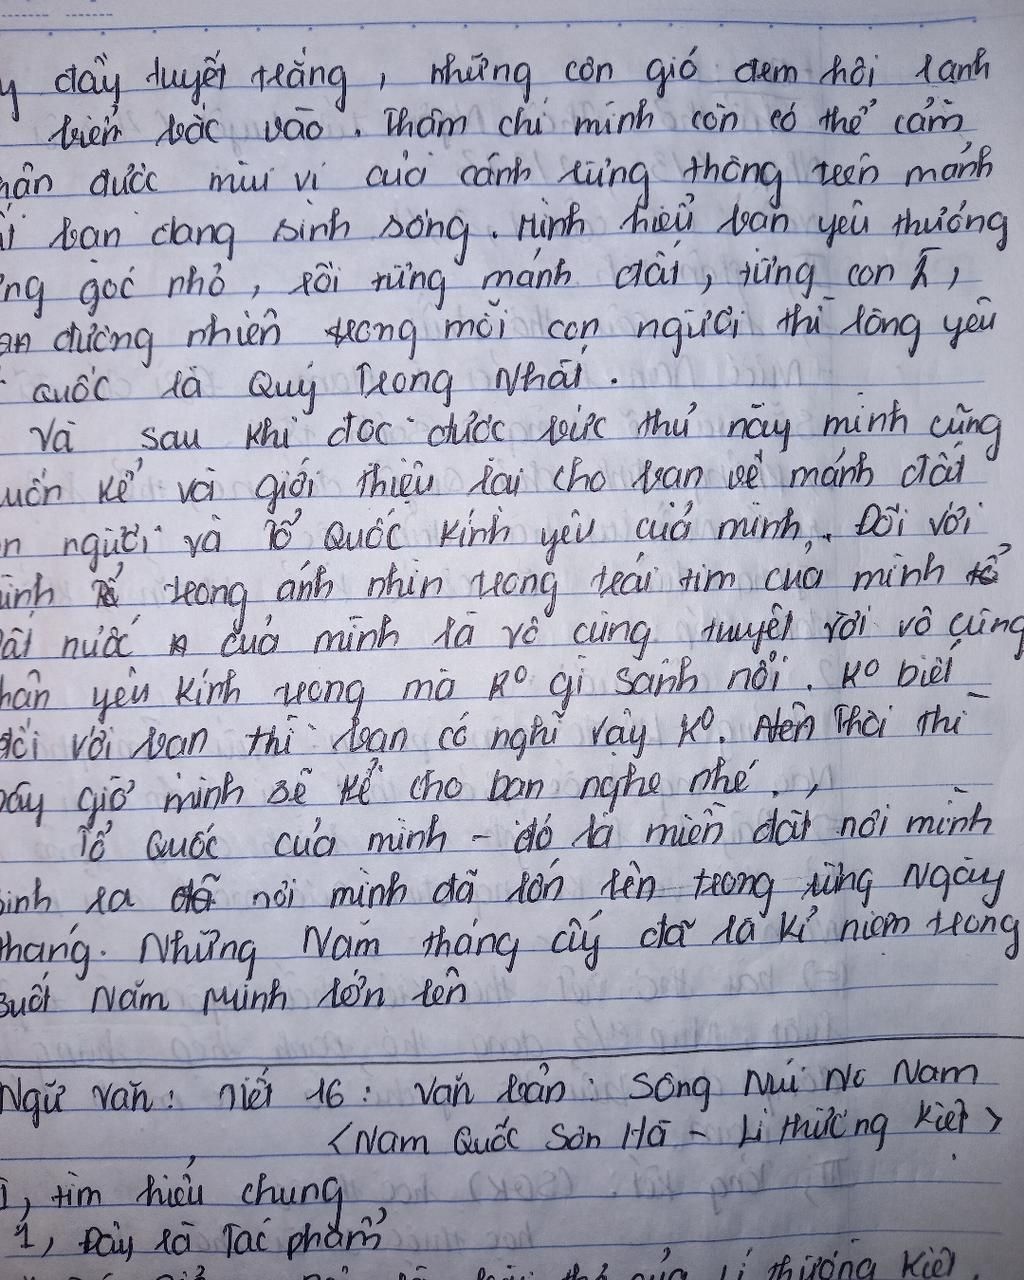 y đầy tuyết trắng, những cơn gió đem hơi lạnh
biển bắc vào. Thậm chí mình còn có thể cảm
hận được mùi vị của cánh rừng thông trên mảnh
bạn đang sinh sống. Mình hiểu bạn yêu thương
ng góc nhỏ, rồi từng mảnh đất, từng con
an đương nhiên trong mỗi con người thì lòng yêu
quốc là Quý Trọng Nhất.
Và sau khi đọc được bức thư này mình cũng
uốn kể và giới thiệu lại cho bạn về mảnh đất
n người và Tổ Quốc Kính yêu của mình. Đối với
ình trong ánh nhìn trong trái tim của mình
ất nước của mình là vô cùng tuyệt vời vô cùng
hân yêu kính trọng mà K⁰ gì sánh nổi. K⁰ biết
đối với bạn thì bạn có nghĩ vậy K⁰. Thôi thì
bây giờ mình sẽ kể cho bạn nghe nhé.,
Tổ Quốc của mình - đó là miền đất nơi mình
sinh ra nơi mình đã lớn lên trong từng Ngày
tháng. Những Năm tháng ấy đã là kỉ niệm trong
suốt Năm Mình lớn lên
Ngữ Văn: Tiết 16: Văn bản: Sông Núi Nc Nam
<Nam Quốc Sơn Hà - Lí Thường Kiệt>
I, tìm hiểu chung
1, Đây là Tác phẩm
của Lí Thường Kiệt.